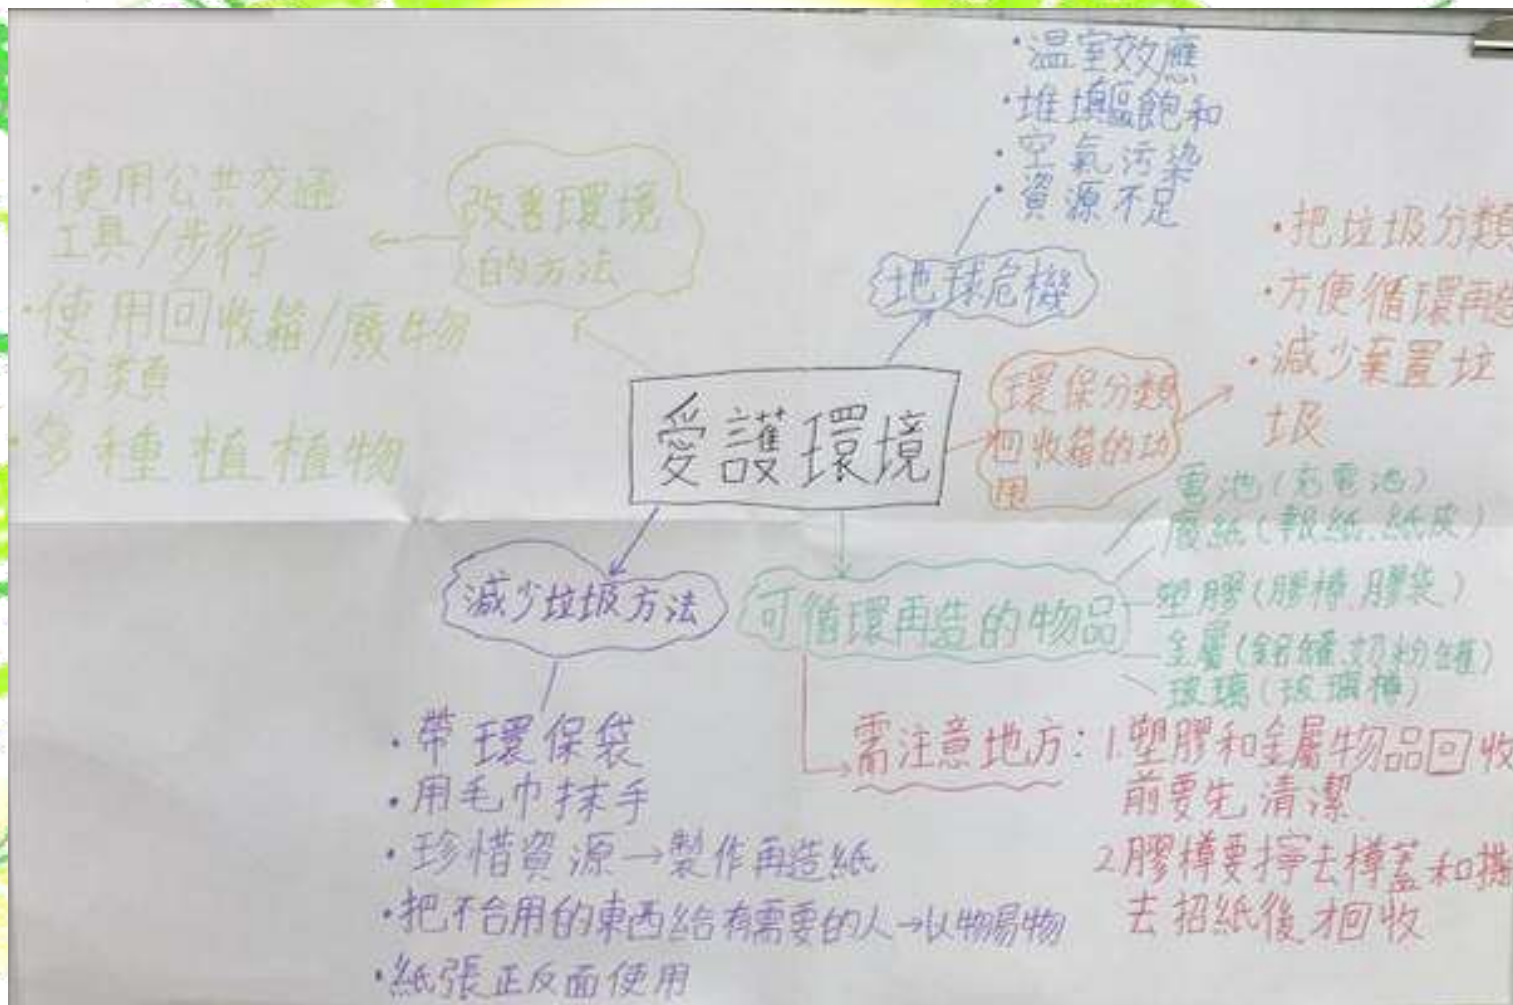 愛護環境
改善環境
的方法
·使用公共交通
工具/步行
·使用回收箱/廢物
分類
·多種植植物
地球危機
·溫室效應
·堆填區飽和
·空氣污染
·資源不足
環保分類
回收箱的功
用
·把垃圾分類
·方便循環再造
·減少棄置垃
圾
可循環再造的物品
電池(充電池)
廢紙(報紙、紙皮)
塑膠(膠樽、膠袋)
金屬(鋁罐、奶粉罐)
玻璃(玻璃樽)
需注意地方:1.塑膠和金屬物品回收
前要先清潔.
2.膠樽要擰去樽蓋和撕
去招紙後才回收
減少垃圾方法
·帶環保袋
·用毛巾抹手
·珍惜資源→製作再造紙
·把不合用的東西給有需要的人→以物易物
·紙張正反面使用